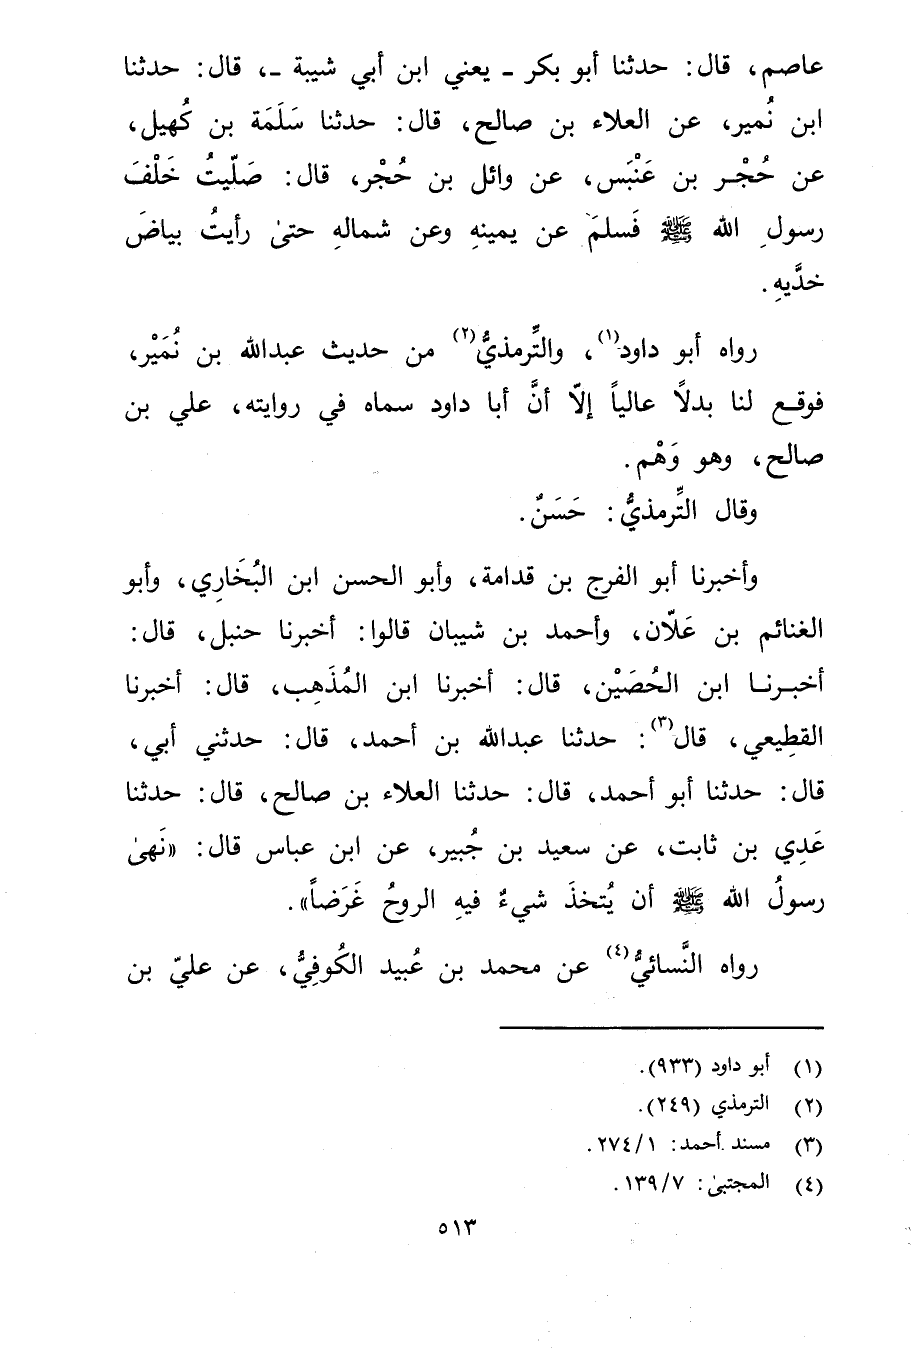 عاصم، قال: حدثنا أبو بكر ـ يعني ابن أبي شيبة ـ، قال: حدثنا
ابن نُمير، عن العلاء بن صالح، قال: حدثنا سَلَمَة بن كُهيل،
عن حُجْر بن عَنْبَس، عن وائل بن حُجْر، قال: صَلّيتُ خَلْفَ
رسولِ الله ﷺ فَسلمَ عن يمينهِ وعن شمالهِ حتىٰ رأيتُ بياضَ
خدَّيهِ.
رواه أبو داود(١)، والتِّرمذيُّ(٢) من حديث عبدالله بن نُمَيْر،
فوقع لنا بدلاً عالياً إلاّ أنَّ أبا داود سماه في روايته، علي بن
صالح، وهو وَهْم.
وقال التِّرمذيُّ: حَسَنٌ.
وأخبرنا أبو الفرج بن قدامة، وأبو الحسن ابن البُخَاري، وأبو
الغنائم بن عَلاّن، وأحمد بن شيبان قالوا: أخبرنا حنبل، قال:
أخبرنا ابن الحُصَيْن، قال: أخبرنا ابن المُذَهِب، قال: أخبرنا
القطِيعي، قال(٣): حدثنا عبدالله بن أحمد، قال: حدثني أبي،
قال: حدثنا أبو أحمد، قال: حدثنا العلاء بن صالح، قال: حدثنا
عَدِي بن ثابت، عن سعيد بن جُبير، عن ابن عباس قال: «نَهىٰ
رسولُ الله ﷺ أن يُتخذَ شيءٌ فيهِ الروحُ غَرَضاً».
رواه النَّسائيُّ(٤) عن محمد بن عُبيد الكُوفِيُّ، عن عليّ بن
(١) أبو داود (٩٣٣).
(٢) الترمذي (٢٤٩).
(٣) مسند أحمد: ٢٧٤/١.
(٤) المجتبىٰ: ١٣٩/٧.
٥١٣